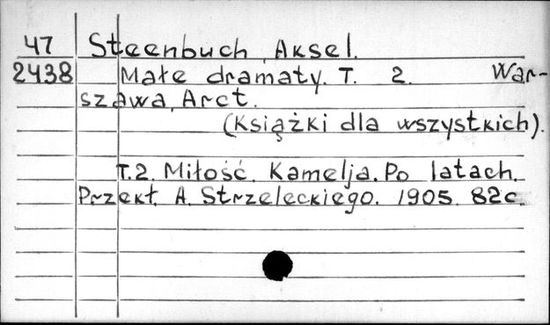 47 Steenbuch, Aksel.
2438 Małe dramaty. T. 2. War-
szawa, Arct.
(Książki dla wszystkich).
T.2. Miłość. Kamelja. Po latach.
Przekł. A. Strzeleckiego. 1905. 82c.